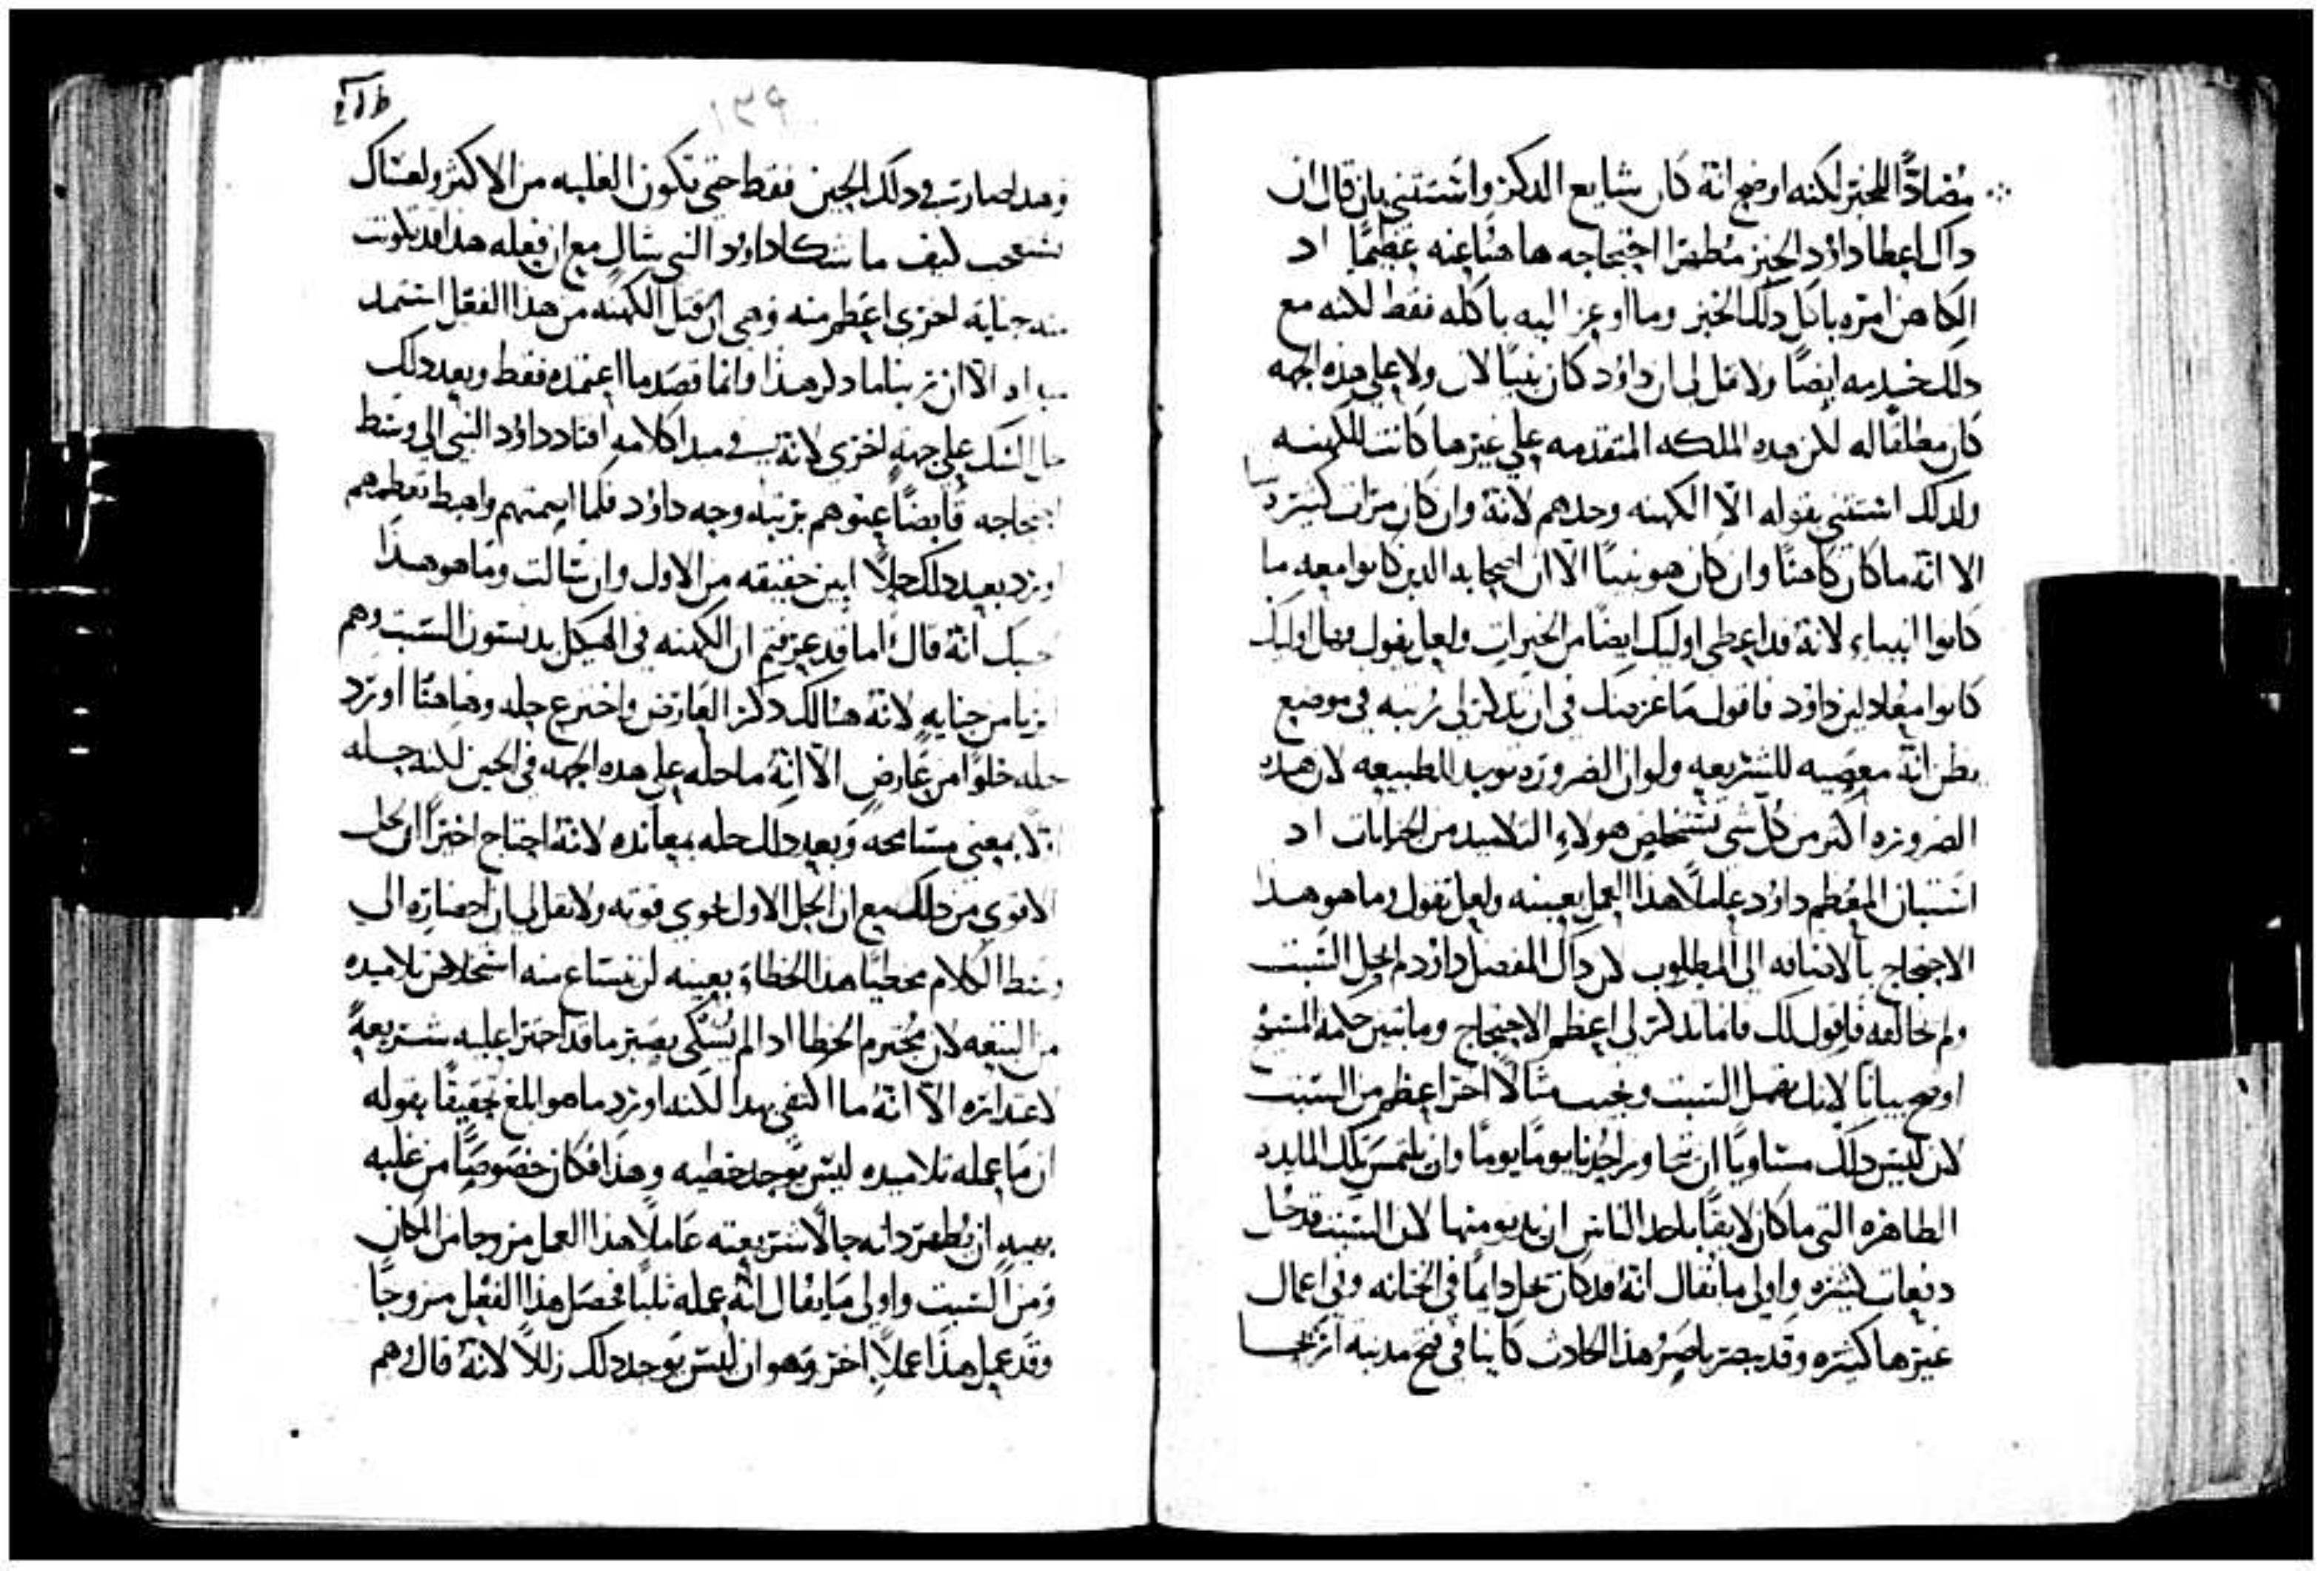 مضادًا للخبز لكنه اوضح انه كان شايع الذكر واستثنى بان قال ان
ذاك اعطا داود الخبز مظهرا احتجاجه هاهنا عنه عظيمًا اد
الكاهن امره باكل دلك الخبز وما اوعز اليه باكله فقط لكنه مع
دلك خدمه ايضًا ولا تقل لي ان داود كان نبيًا لان ولا على هذه الجهه
كان مطلقا له لكن هده الملكه المتقدمه على غيرها كانت للكهنه
ولدلك استثنى بقوله الا الكهنه وحدهم لانه وان كان مرات كثيره
الا انه ما كان كاهنًا وان كان هو نبيًا الا ان اصحابه الدين كانوا معه ما
كانوا انبياء لانه قد اعطى اوليك ايضًا من الخيرات ولعل يقول فهل اوليك
كانوا معادلين داود فاقول ما غرضك في ان تدكر لي رتبه في موضع
يظن انه معصيه للشريعه ولو ان الضروره توبد للطبيعه لان هده
الضروره اكثر من كل شي تستخلص هولاء التلاميد من الجنايات اد
استبان المعظم داود عاملًا هذا العمل بعينه ولعل تقول وما هو هدا
الاحتجاج بالاضافه الى المطلوب لان داك المفضل داود لم يحل السبت
ولم يخالفه فاقول لك فانما تدكر لي اعظم الاحتجاج وما تبين حكمة المسيح
اوضح بيانًا لانك تهمل السبت وتجيب مثالًا اخر اعظم من السبت
لان ليس دلك مساويًا ان تجاوز احدنا يومًا يومًا وان يلتمس تلك المايده
الطاهره التي ما كان لايقًا باحد الناس ان يدنو منها لان السبت قد حل
دفعات كثيره واولى ما يقال انه قد كان يحل دايمًا في الختانه وفي اعمال
غيرها كثيره وقد يبصر باصر هذا الحادث كاينا في فتح مدينه اريحا
١٣٩
وهدا صار في دلك الحين فقط حتى تكون الغلبه من الاكثر ولعساك
تستعجب كيف ما شكا داود النبي سال مع ان فعله هدا قد تكونت
منه جنايه اخرى اعظم منه وهي ان قتل الكهنه من هذا الفعل استمد
الا ان ربنا ما دكر هذا وانما قصد ما اعتمده فقط وبعد دلك
حل الشك على جهه اخرى لانه في مبدا كلامه اقتاد داود النبي الى وسط
احتجاجه قابضًا عتوهم برتبه وجه داود فلما اصمتهم واهبط تعظمهم
اورد بعد دلك حلًا ابين حقيقه من الاول وان سالت وما هو هذا
اجبتك انه قال اما قد عرفتم ان الكهنه في الهيكل يدنسون السبت وهم
ابريا من جنايه لانه هنالك دكر العارض واخترع حله وهاهنا اورد
حله خلوًا من عارض الا انه ما حله على هده الجهه في الحين لكنه حله
اولا بمعنى مسامحه وبعد دلك حله بمعانده لانه احتاج اخيرًا ان يحل
الاقوى من دلك مع ان الحل الاول يحوي قوته ولا تقل لي ان احضاره الى
وسط الكلام مخطيًا هذا الخطاء بعينه لن يستاع منه استخلاص تلاميده
من التبعه لان مجترم الخطا اد الم يُشكى يصير ما قد اجترا عليه شريعةً
لاعتداره الا انه ما اكتفى بهدا لكنه اورد ما هو ابلغ تحقيقًا بقوله
ان ما عمله تلاميده ليس يوجد خطيه وهذا فكان خصوصًا من غلبه
بعيده ان يُظهر داته حالًا شريعته عاملًا هذا العمل مزوجا من المكان
ومن السبت واولى ما يقال انه عمله ثلثا فحصل هذا الفعل مزوجًا
وقد عمل هذا عملًا اخر وهو ان ليس يوجد دلك زللًا لانه قال وهم